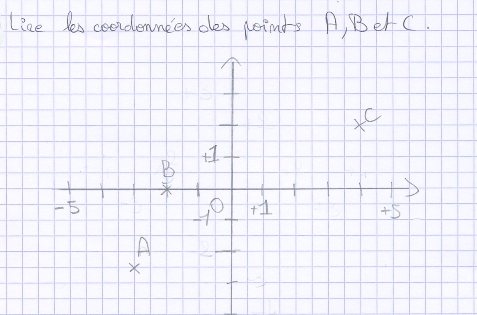 Lire les coordonnées des points A, B et C.
C
+1
B
-5
-1
O
+1
+5
A